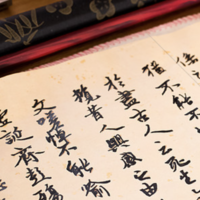 猶不能不
於盡古人云死生
攬昔人興感之由
文嗟悼不能喻
虛誕齊彭殤